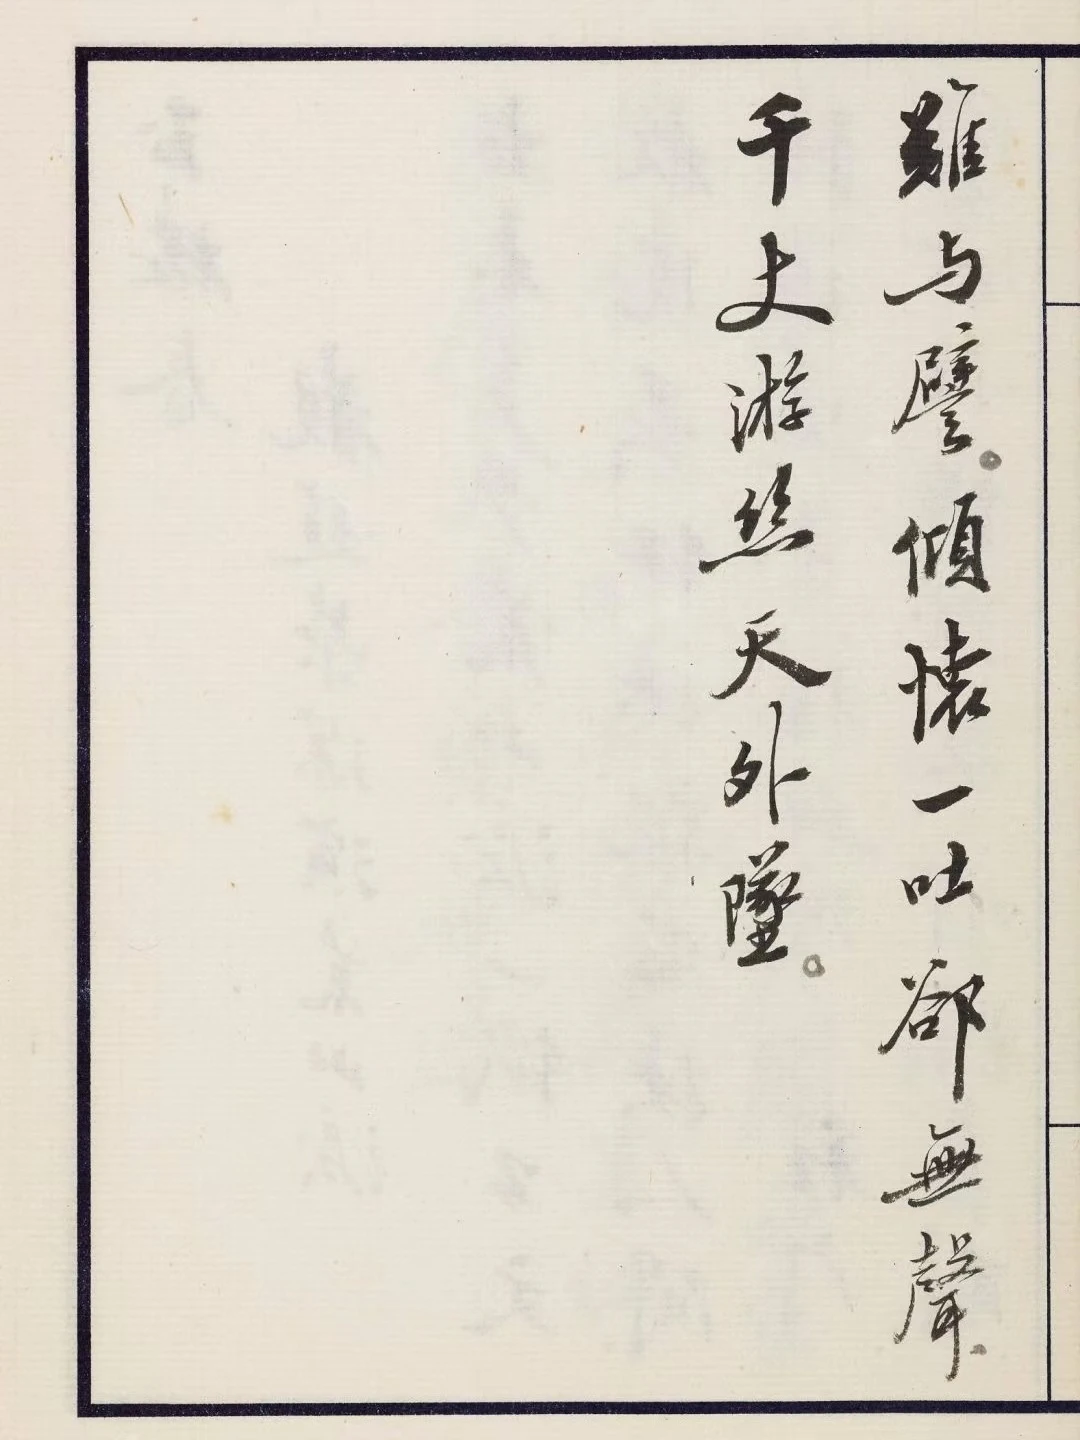 難与譬。傾懷一吐郤無聲。
千丈游絲天外墜。